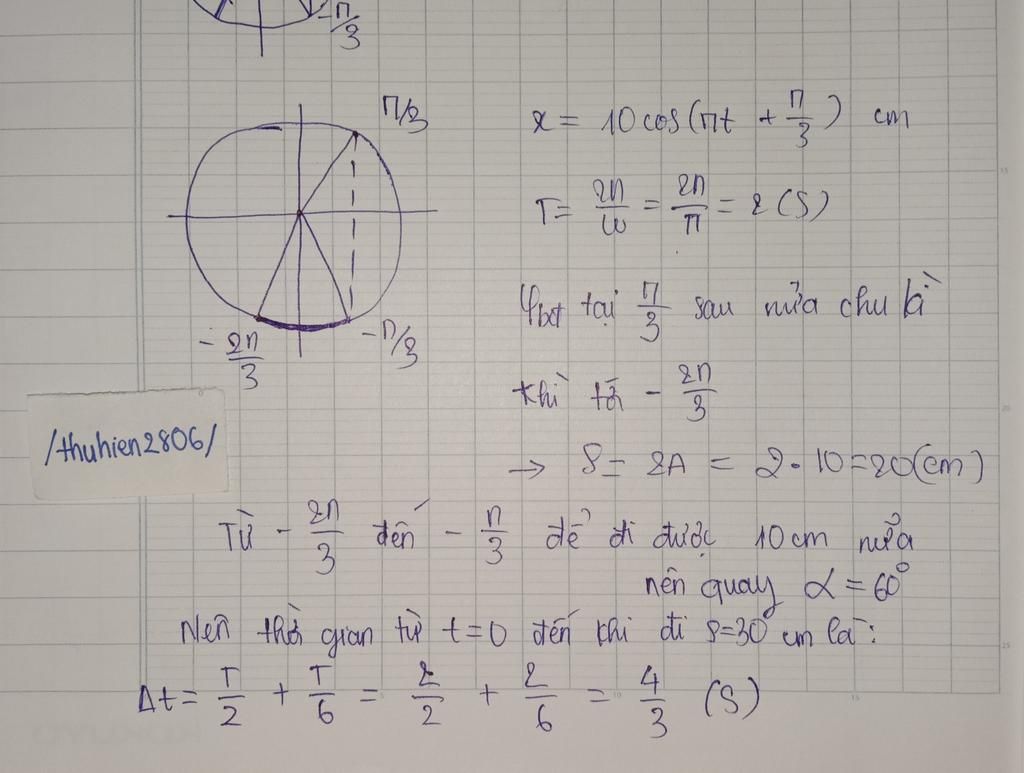 -π/3
π/3
x = 10cos(πt + π/3) cm
T = 2π/ω = 2π/π = 2 (s)
φbđ tại π/3 sau nửa chu kì
-2π/3
-π/3
thì tới -2π/3
/thuhien2806/
→ S = 2A = 2.10 = 20(cm)
Từ -2π/3 đến -π/3 để đi được 10cm nữa
nên quay α = 60°
Nên thời gian từ t=0 đến khi đi s=30 cm là:
Δt = T/2 + T/6 = 2/2 + 2/6 = 4/3 (s)